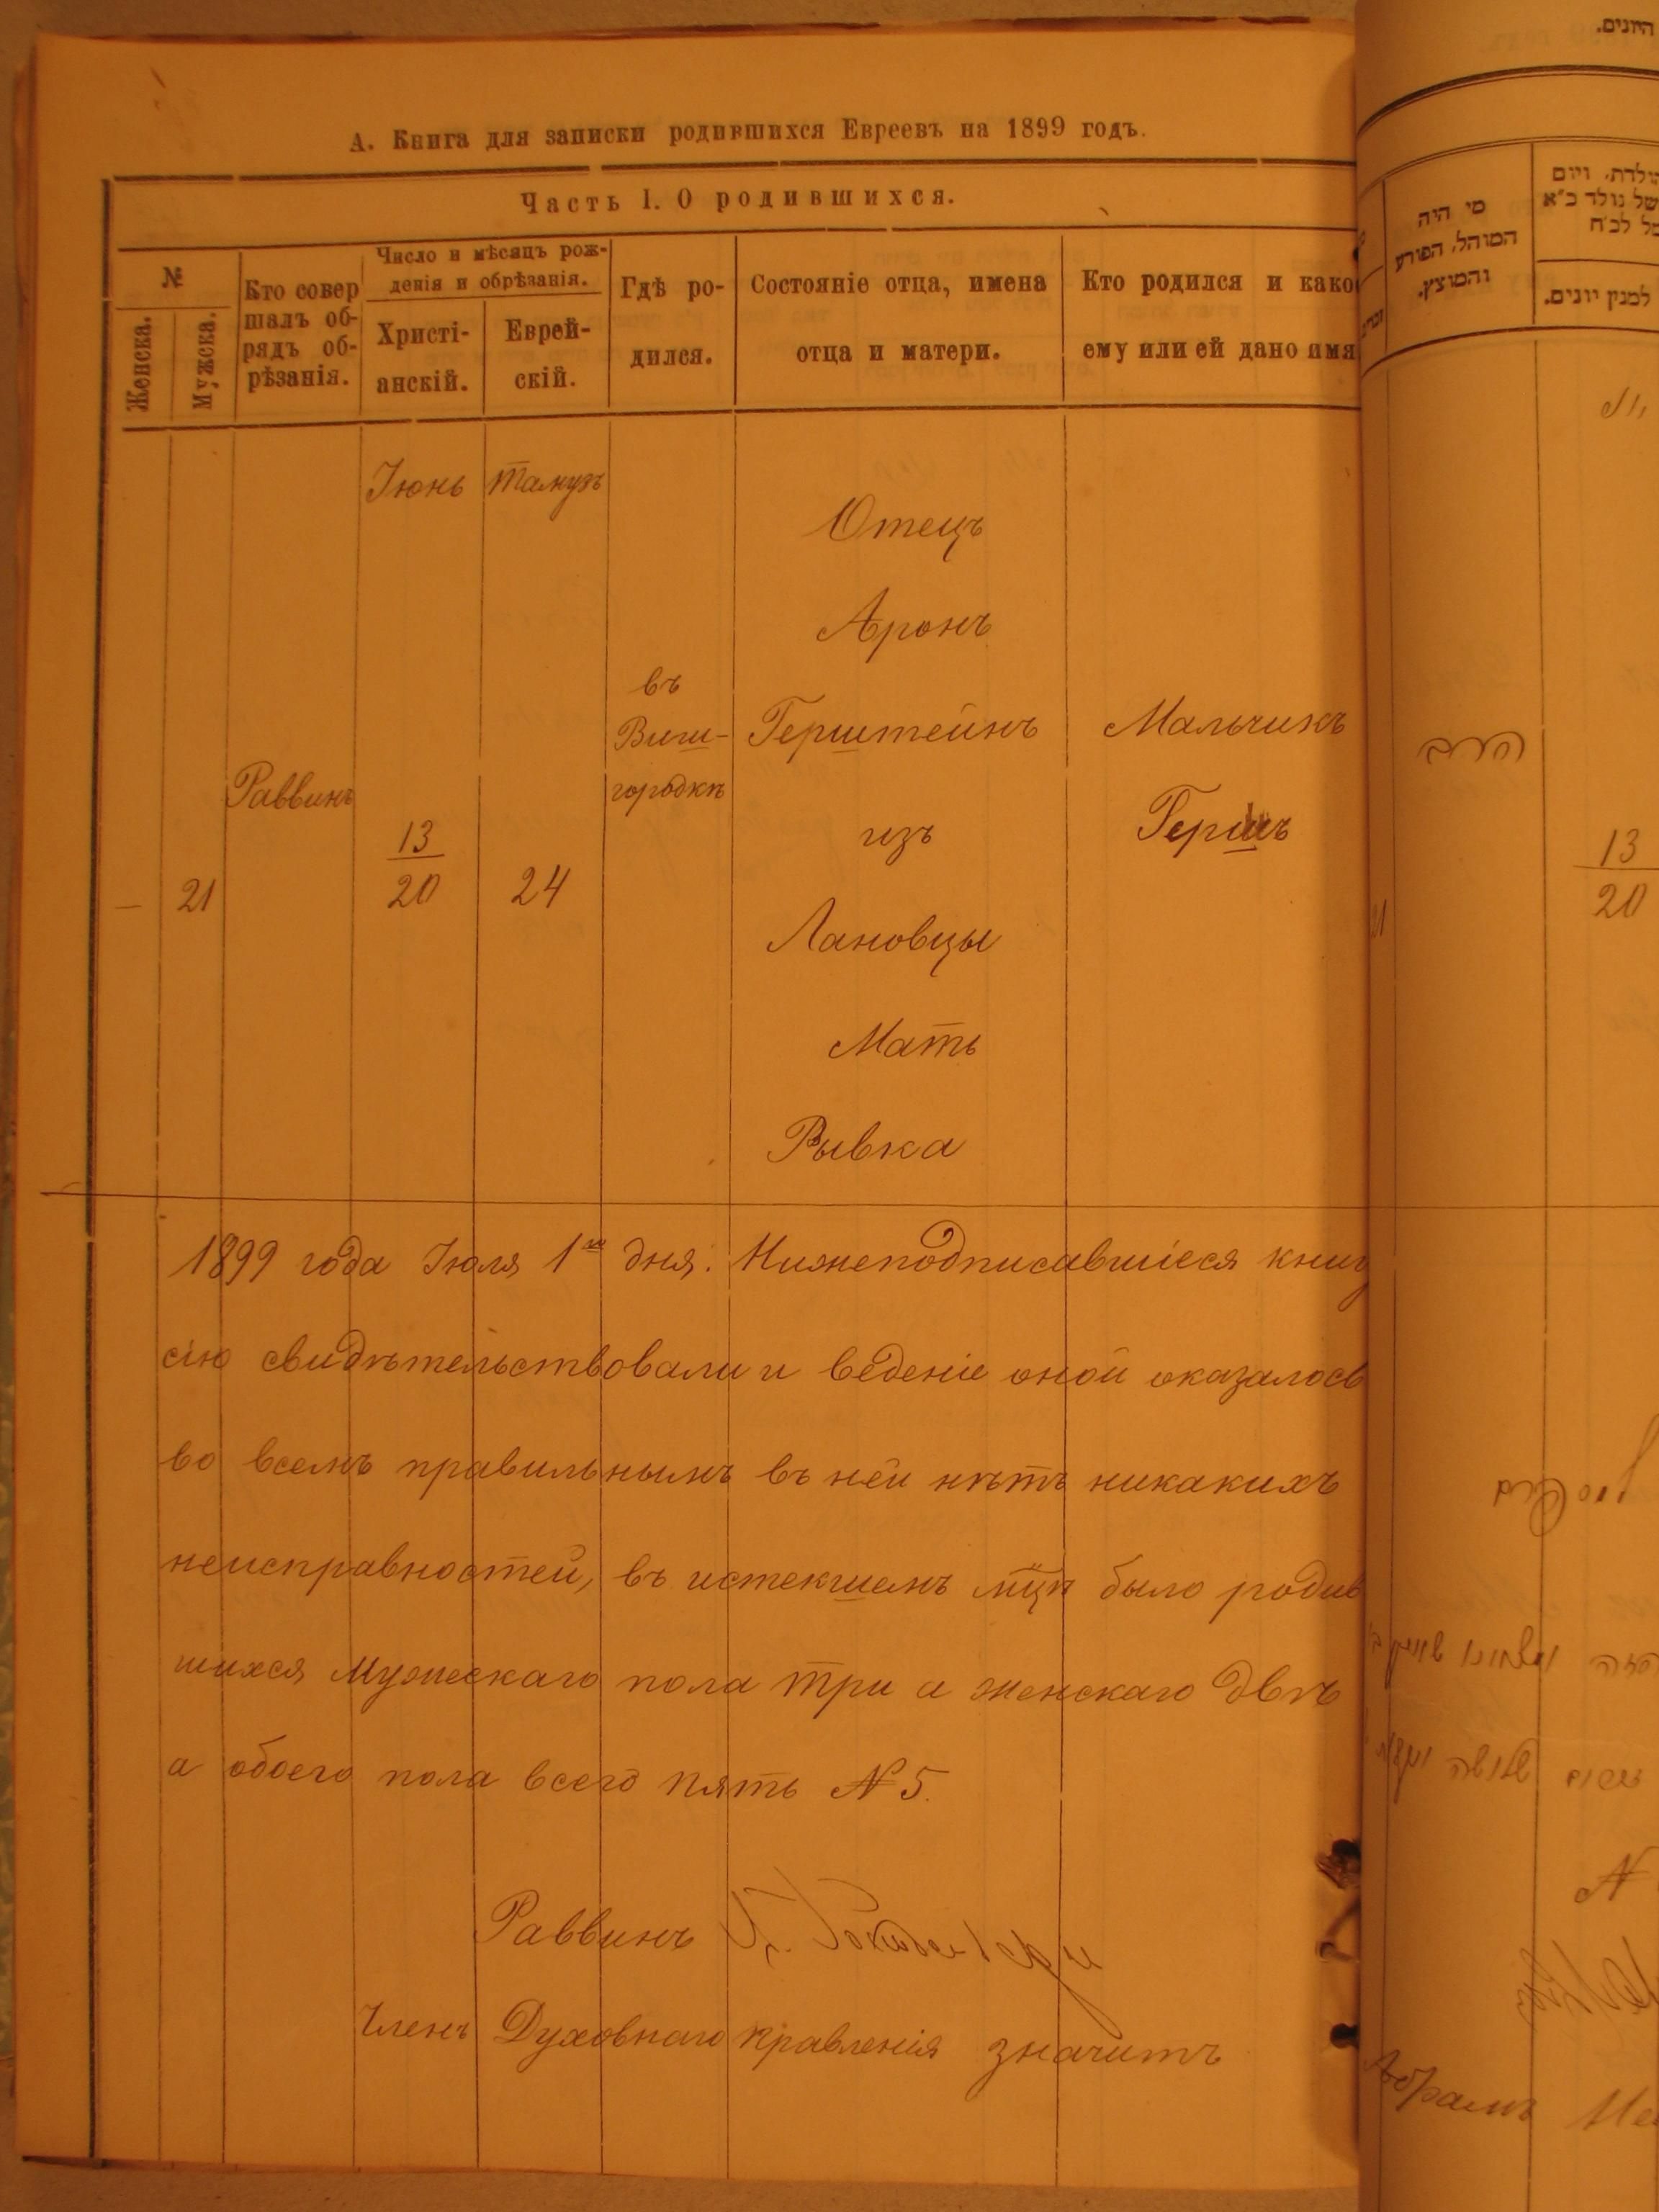 А. Книга для записки родившихся Евреевъ на 1899 годъ.
Часть I. О родившихся.
№
Женска.
Мужска.
Кто совер
шалъ об-
рядъ об-
рѣзанія.
Число и мѣсяцъ рож-
денія и обрѣзанія.
Христі-
анскій.
Еврей-
скій.
Гдѣ ро-
дился.
Состояніе отца, имена
отца и матери.
Кто родился и како
ему или ей дано имя
—
21
Раввинъ
Іюнь
13
20
Тамузъ
24
въ
Виш-
городкѣ
Отецъ
Аронъ
Герштейнъ
изъ
Лановцы
Мать
Рывка
Мальчикъ
Гершъ
1899 года Іюля 1го дня. Нижеподписавшіеся книг
сію свидѣтельствовали и веденіе оной оказалось
во всемъ правильнымъ въ ней нѣтъ никакихъ
неисправностей, въ истекшемъ мцѣ было родив
шихся Мужескаго пола три а женскаго двѣ
а обоего пола всего пять № 5.
Раввинъ
Членъ Духовнаго правленія значитъ
היונים.
מי היה
המוהל, הפורע
והמוצץ.
הולדת, ויום
של נולד כ"א
למנין יונים.
הרב
13
20
21
№
Абрамъ